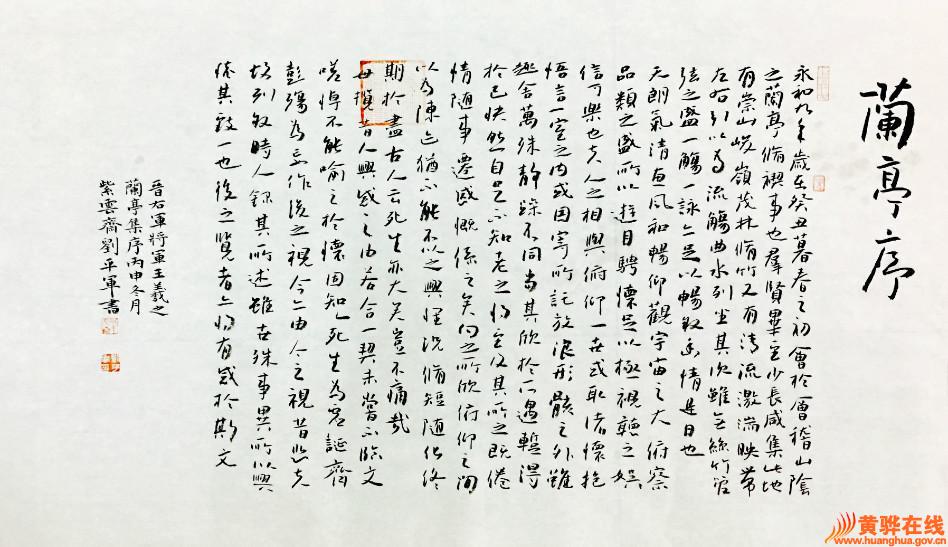 蘭亭序
永和九年歲在癸丑暮春之初會於會稽山陰
之蘭亭脩禊事也羣賢畢至少長咸集此地
有崇山峻嶺茂林脩竹又有清流激湍映帶
左右引以為流觴曲水列坐其次雖無絲竹管
弦之盛一觴一詠亦足以暢敘幽情是日也
天朗氣清惠風和暢仰觀宇宙之大俯察
品類之盛所以遊目騁懷足以極視聽之娛
信可樂也夫人之相與俯仰一世或取諸懷抱
悟言一室之內或因寄所託放浪形骸之外雖
趣舍萬殊靜躁不同當其欣於所遇暫得
於己快然自足不知老之將至及其所之既倦
情隨事遷感慨係之矣向之所欣俯仰之間
以為陳迹猶不能不以之興懷況脩短隨化終
期於盡古人云死生亦大矣豈不痛哉
每攬昔人興感之由若合一契未嘗不臨文
嗟悼不能喻之於懷固知死生為虛誕齊
彭殤為妄作後之視今亦由今之視昔悲夫
故列敘時人錄其所述雖世殊事異所以興
懷其致一也後之覽者亦將有感於斯文
晉右軍將軍王羲之
蘭亭集序丙申冬月
紫雲齋劉平軍書
黄骅在线
www.huanghua.gov.cn